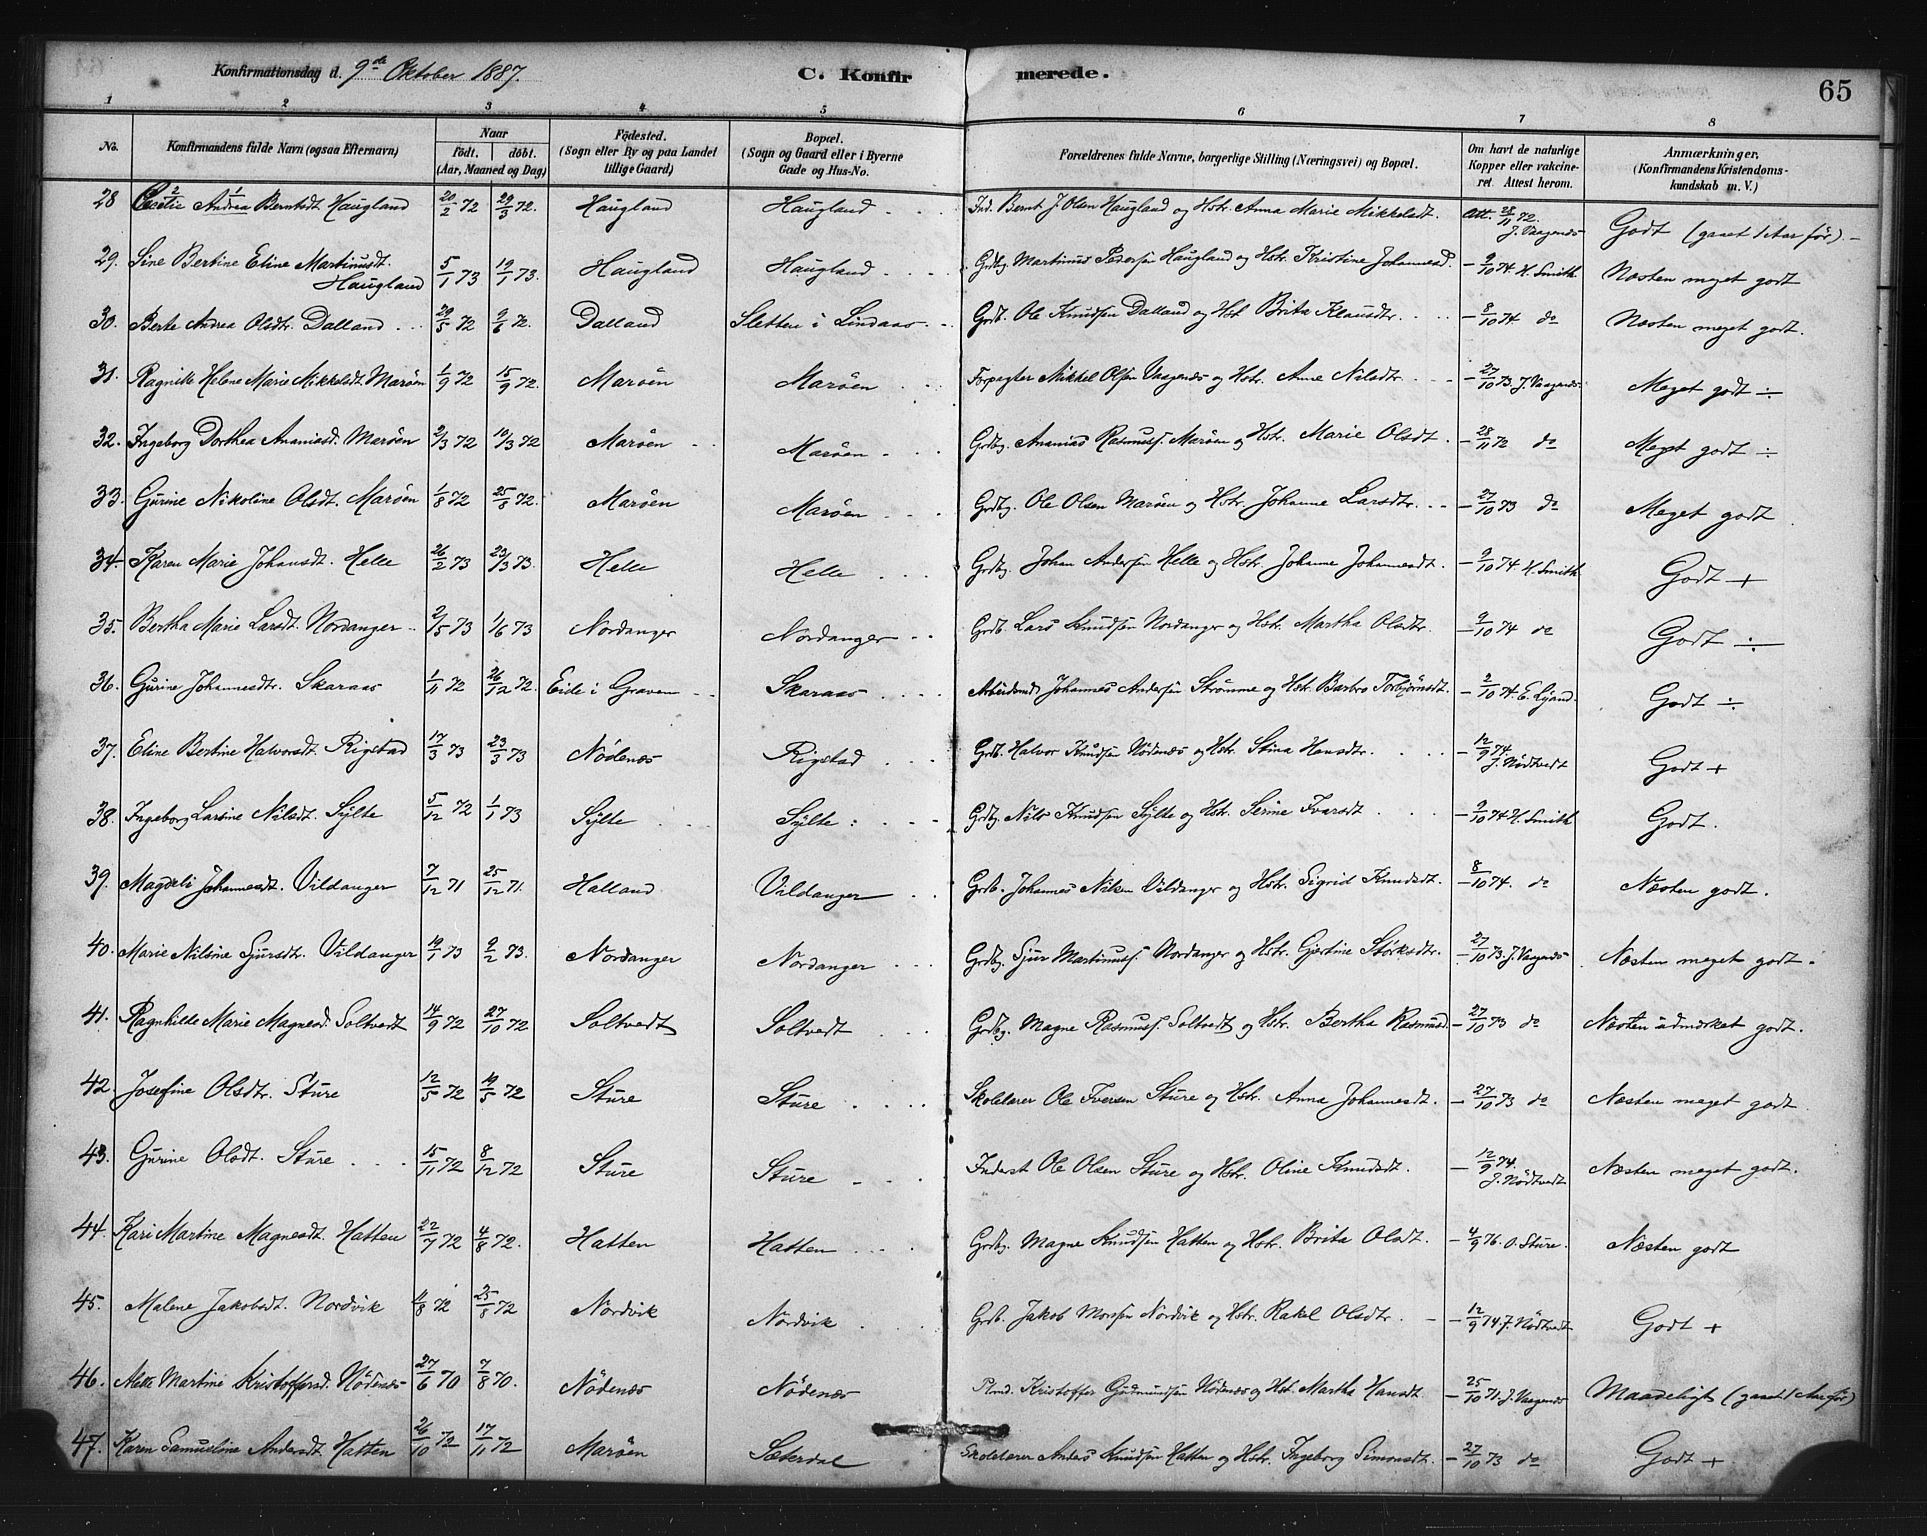 Konfirmationsdag d. 9de Oktober 1887. C. Konfirmerede. 65
1 2 3 4 5 6 7 8
No. Konfirmandens fulde Navn (ogsaa Efternavn) Naar födt. döbt. (Aar, Maaned og Dag) Födested. (Sogn eller By og paa Landet tillige Gaard) Bopæl. (Sogn og Gaard eller i Byerne Gade og Hus-No. Forældrenes fulde Navne, borgerlige Stilling (Næringsvei) og Bopæl. Om havt de naturlige Kopper eller vakcineret. Attest herom. Anmærkninger. (Konfirmandens Kristendomskundskab m. V.)
28 Andrea Berntsdt. Haugland 20/2 72 29/3 72. Haugland Haugland Ind. Bernt J. Olsen Haugland og Hstr. Anna Marie Mikkelsdt. Att. 28/11 72. J. Vaagenes Godt (gaaet 1 Aar för)
29. Sine Bertine Eline Martinusdt. Haugland 5/1 73 19/1 73. Haugland Haugland Grdbg. Martinus Pedersen Haugland og Hstr. Kristine Johannesd. - 9/10 74 H. Smith Næsten meget godt
30. Berte Andrea Olsdtr. Dalland 29/5 72 9/6 72. Dalland Sletten i Lindaas Grdb. Ole Knudsen Dalland og Hst. Brita Klausdtr. - 8/10 74 do Næsten meget godt.
31. Ragnille Helene Marie Mikkelsdt. Maröen 1/9 72 15/9 72. Maröen Maröen Forpagter Mikkel Olsen Vaagenes og Hstr. Anne Nilsdtr. - 27/10 73. J. Vaagenes Meget godt ÷
32. Ingeborg Dorthea Ananiasd. Maröen 2/3 72 10/3 72 Maröen Maröen Grdbg. Ananias Rasmuss. Maröen og Hstr. Marie Olsdt. - 28/11 72 do Meget godt ÷
33. Gurine Nikoline Olsdt. Maröen 1/8 72 25/8 72. Maröen Maröen Grdbg. Ole Olsen Maröen og Hstr. Johanne Larsdtr. - 27/10 73 do Meget godt
34. Karen Marie Johansdt. Helle 26/2 73 23/3 73. Helle Helle Grdbg. Johan Andersen Helle og Hstr. Johanne Johannesdt. - 9/10 74. H. Smith Godt +
35. Bertha Marie Larsdt. Nordanger 2/5 73 1/6 73 Nordanger Nordanger Grdb. Lars Knudsen Nordanger og Hstr. Martha Olsdtr. - 9/10 74 do Godt ÷
36. Gurine Johannesdtr. Skaraas 1/11 72 26/12 72. Eide i Graven Skaraas Arbeidsmd. Johannes Andersen Strömme og Hstr. Barbro Torbjörnsdt. - 2/10 74. E. Lyand. Godt ÷
37. Eline Bertine Halvorsdt. Rigstad 17/3 73 23/3 73 Nödenæs Rigstad Grdb. Halvor Knudsen Nödenæs og Hstr. Stina Hansdtr. - 12/9 74. J. Nödtvedt Godt +
38. Ingeborg Larsine Nilsdt. Sylte 5/12 72 1/1 73 Sylte Sylte Grdbg. Nils Knudsen Sylte og Hstr. Serine Ivarsdt - 9/10 74 H. Smith Godt.
39. Magdeli Johannesdt. Vildanger 7/12 71 25/12 71. Halland Vildanger Grdb. Johannes Nilsen Vildanger og Hstr. Sigrid Knudsdt. - 8/10 74. do Næsten godt.
40. Marie Nilsine Sjursdtr. Vildanger 19/1 73 9/2 73. Nordanger Nordanger Grdbg. Sjur Martinuss. Nordanger og Hstr. Gjertine Störksdtr. - 27/10 73. J. Vaagenes Næsten meget godt.
41. Ragnhilde Marie Magnesd. Soltvedt 14/9 72 27/10 72 Soltvedt Soltvedt Grdbg. Magne Rasmuss. Soltvedt og Hstr. Bertha Rasmusd. - 27/10 73 do Næsten udmærket godt.
42. Josefine Olsdtr. Sture 12/5 72 19/5 72 Sture Sture Skolelærer Ole Iversen Sture og Hstr. Anna Johannesdt. - 27/10 73 do Næsten meget godt
43. Gurine Olsdt. Sture 15/11 72 8/12 72 Sture Sture Inderst Ole Olsen Sture og Hstr. Oline Knudsdt. - 12/9 74. J. Nödtvedt Næsten meget godt.
44. Kari Martine Magnesdt. Hatten 22/7 72 4/8 72. Hatten Hatten Grdbg. Magne Knudsen Hatten og Hstr. Brita Olsdt. - 4/9 76. O. Sture. Næsten godt
45. Malene Jakobsdt. Nordvik 11/8 72 25/8 72 Nordvik Nordvik Grdb. Jakob Monsen Nordvik og Hstr. Rakel Olsdtr. - 12/9 74. J. Nödtvedt Godt +
46. Mette Martine Kristoffersd. Nödenæs 27/6 70 7/8 70. Nödenæs Nödenæs Plmd. Kristoffer Gudmundsen Nödenæs og Hst. Martha Hansdt. - 25/10 71. J. Vaagenes Maadeligt (gaaet 1 Aar för)
47. Karen Samueline Andersdt. Hatten 26/10 72 17/11 72 Maröen Sæterdal Skolelærer Anders Knudsen Hatten og Hstr. Ingeborg Simonsdt. - 27/10 73 do Godt +